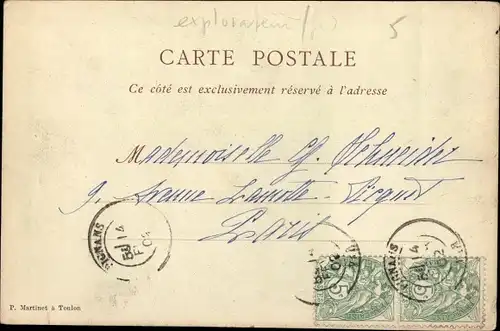 explorateur (?) 5
CARTE POSTALE
Ce côté est exclusivement réservé à l'adresse
Mademoiselle G. Schneider
9. Avenue Lamotte-Picquet
Paris
PIGNANS
14
02
PIGNANS
14
02
5c
5c
P. Martinet à Toulon